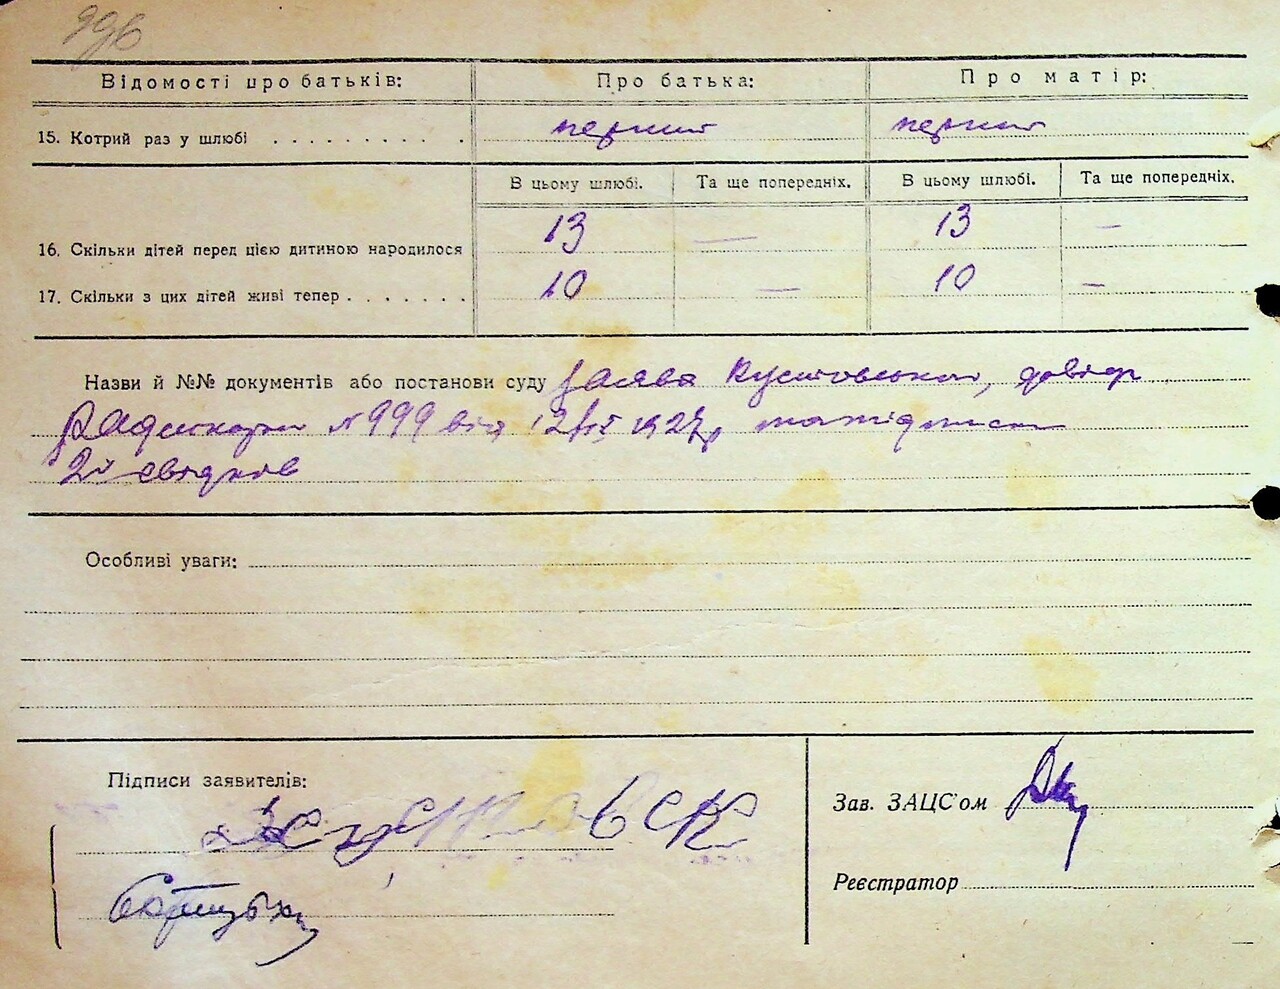 996
Відомості про батьків: Про батька: Про матір:
15. Котрий раз у шлюбі . . . . . . . . . перший перший
В цьому шлюбі. Та ще попередніх. В цьому шлюбі. Та ще попередніх.
16. Скільки дітей перед цією дитиною народилося 13 — 13 —
17. Скільки з цих дітей живі тепер . . . . . . . 10 — 10 —
Назви й №№ документів або постанови суду заява
№ 999 від 1927р. та підписи
2х свідків
Особливі уваги:
Підписи заявителів:
Зав. ЗАЦС'ом
Реєстратор